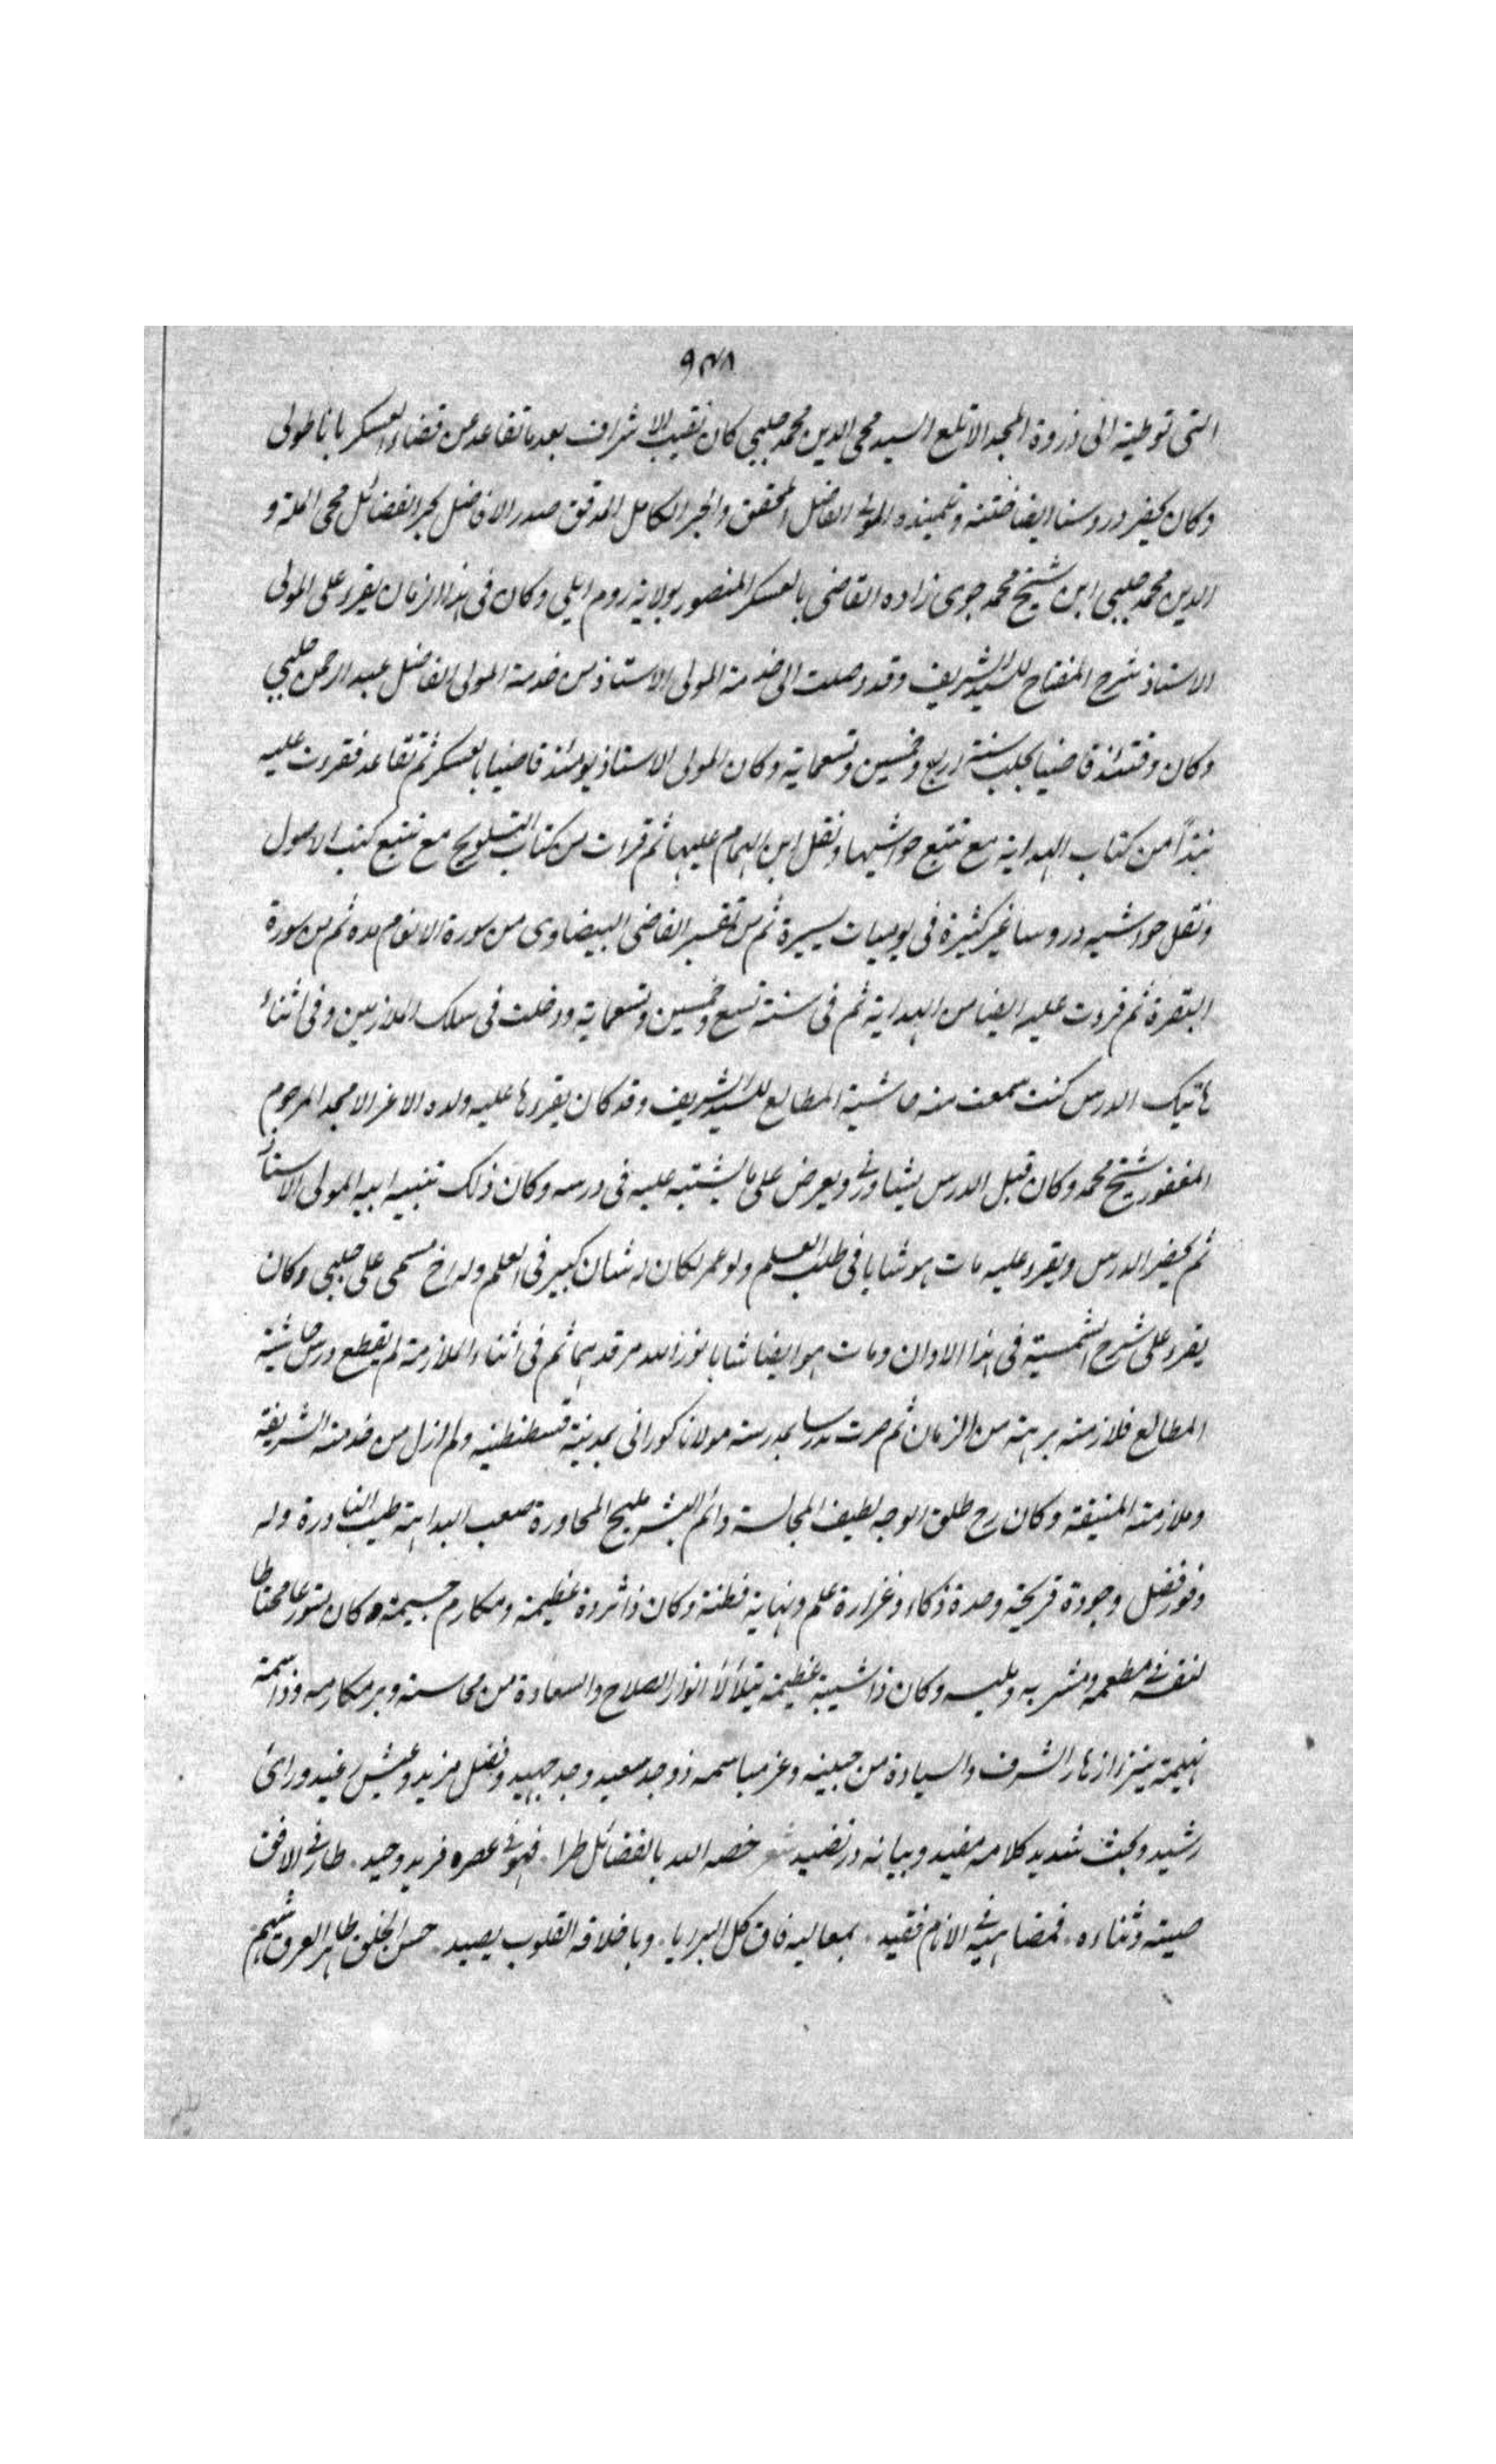 ٩٣٨
التى توطية الى ذروة المجد الاتلع السيد محى الدين محمد چلبي كان نقيب الاشراف بعد ما تقاعد من قضاء العسكر باناطولى
وكان يحضر دروسنا ايضا ختنه وتلميذه المولى الفاضل المحقق والحبر الكامل المدقق صدر الافاضل بحر الفضائل محى الملة و
الدين محمد چلبي ابن شيخ محمد جوى زاده القاضى بالعسكر المنصور بولاية روم ايلي وكان فى هذا الزمان يقرء على المولى
الاستاذ شرح المفتاح للسيد الشريف وقد وصلت الى خدمة المولى الاستاذ من خدمة المولى الفاضل عبد الرحمن چلبي
وكان وقتئذ قاضيا بحلب سنة اربع وخمسين وتسعماية وكان المولى الاستاذ يومئذ قاضيا بالعسكر ثم تقاعد فقرءت عليه
نبذاً من كتاب الهداية مع تتبع حواشيها ونقل ابن الهمام عليها ثم قراءت من كتاب التلويح مع تتبع كتب الاصول
ونقل حواشيه دروسا غير كثيرة فى يوميات يسيرة ثم من تفسير القاضى البيضاوى من سورة الانعام مده ثم من سورة
البقرة ثم قرءت عليه ايضا من الهداية ثم فى سنة تسع وخمسين وتسعماية ودخلت فى سلك الملازمين وفى اثناء
هاتيك الدرس كنت سمعت منه حاشية المطالع للسيد الشريف وقد كان يقرءها عليه ولده الاعز الامجد المرحوم
المغفور شيخ محمد وكان قبل الدرس يشاورنى ويعرض على ما يشتبه عليه فى درسه وكان ذلك تنبيه ابيه المولى الاستاذ
ثم يحضر الدرس ويقرء عليه مات هو شابا فى طلب العلم ولو عمر لكان له شان كبير فى العلم وله اخ مسمى على چلبي وكان
يقرء على شرح الشمسية فى هذا الاوان ومات هو ايضا شابا نور الله مرقدهما ثم فى اثناء الملازمة لم يقطع درس حاشية
المطالع فلازمته برهة من الزمان ثم صرت مدرسا بمدرسة مولانا كورانى بمدينة قسطنطنيه ولم ازل من خدمته الشريفة
وملازمته المنيفة وكان رح طلق الوجه لطيف المجالسة دائم البشر مليح المحاورة صعب البداهة طيب النادرة وله
وفور فضل وجودة قريحة وحدة ذكاء وغزارة علم ونهاية فطنة وكان ذا ثروة عظيمة ومكارم جسيمة وكان متورعا محتاطا
لنفسه فى مطعمه ومشربه وملبسه وكان ذا شيبة عظيمة يتلألأ انوار الصلاح والسعادة من محاسنه وبرمكارمه وذا سمة
بهيمة يبرز ازهار الشرف والسيادة من جبينه وعز مباسمه ذو جد سعيد وجد جهيد وفضل مزيد وعيش رغيد وراى
رشيد وبحث شديد كلامه مفيد وبيانه در نضيد شعر خصه الله بالفضائل طرا . فهو فى عصره فريد وحيد . طار فى الافق
صيته وثناءه . فمضاهيه فى الانام فقيد . بمعاليه فاق كل البرايا . وباخلاقه القلوب يصيد . حسن الخلق طاهر العرق شهم